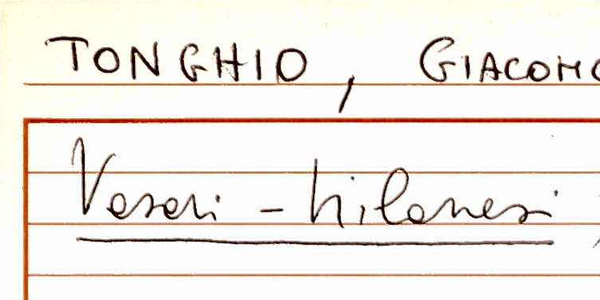 TONGHIO, GIACOMO
Vasari - Milanesi